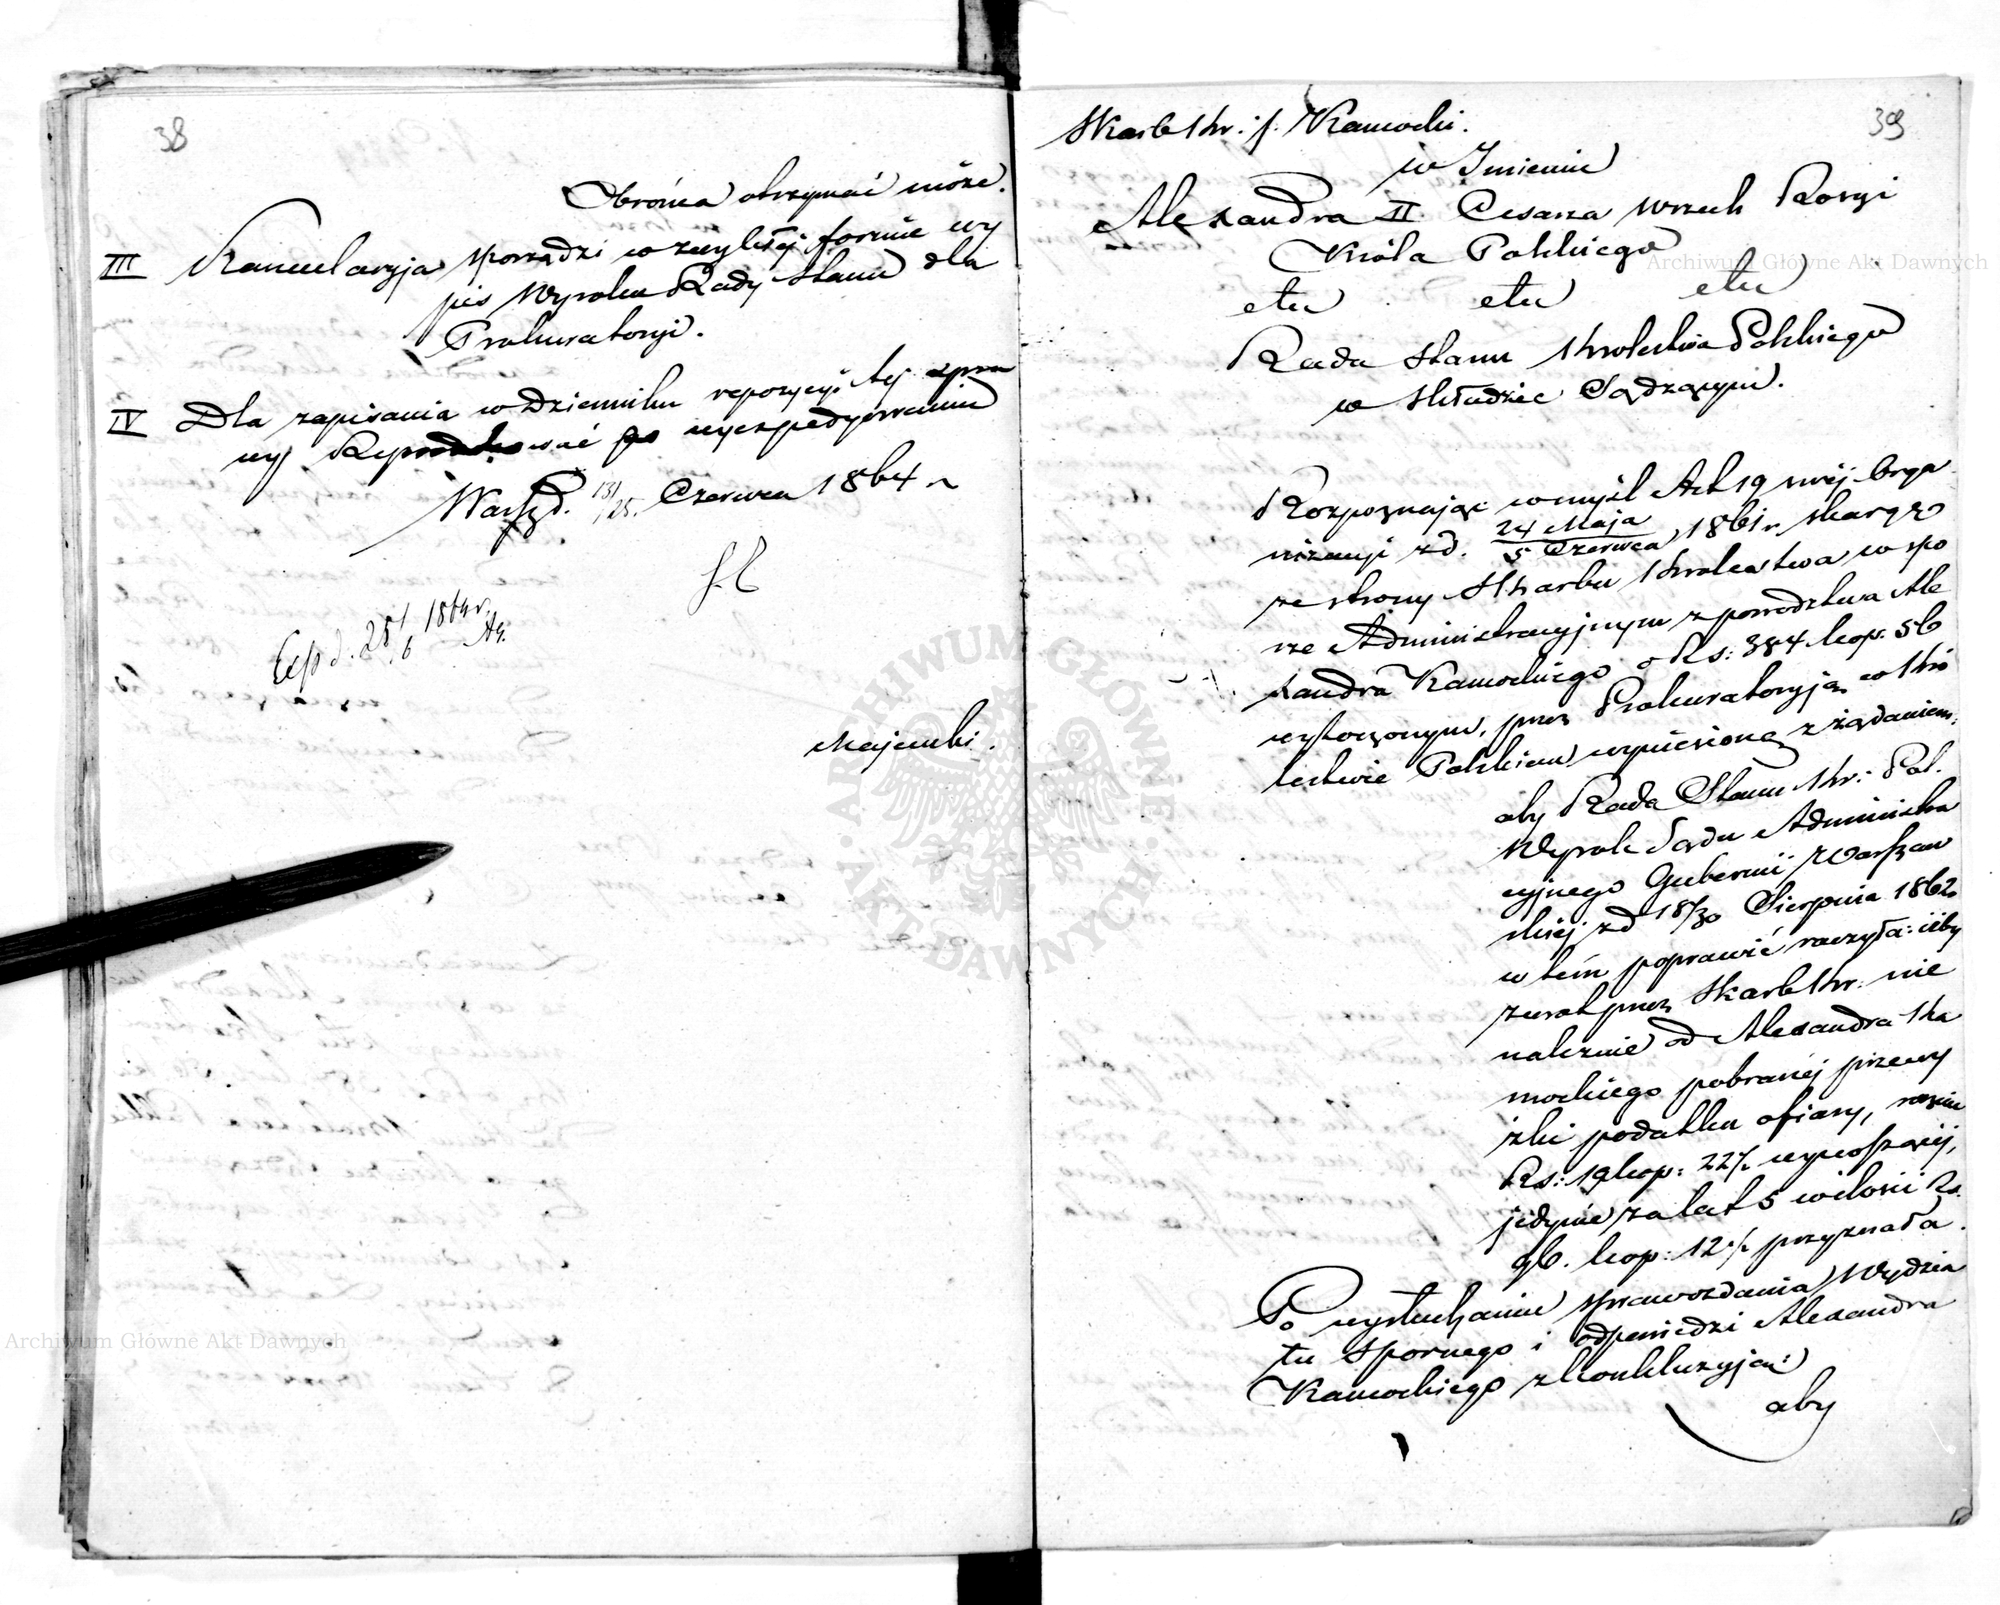 38
Obrońca otrzymać może.
III Kancelaryja sporządzi w zwykłej formie wy
pis Wyroku Rady Stanu dla
Prokuratoryi.
IV Dla zapisania w Dzienniku repozycyi tej spra
wy po wyexpedyowaniu
Warsz. d. 13/25. Czerwca 1864 r
Expd. 25/6 1864 r.
Majewski.
39
Skarb Kr: /: Kamocki.
w Imieniu
Alexandra II Cesarza Wszech Rosyi
Króla Polskiego
etc etc etc
Rada Stanu Królestwa Polskiego
w Składzie Sądzącym.
Rozpoznając w myśl Art 19 swej Orga
nizacyi z d. 24 Maja / 5 Czerwca 1861 r. skargę
ze strony Skarbu Królestwa w spo
rze Administracyjnym z powództwa Ale
xandra Kamockiego o Rs: 384 kop. 56
wytoczonym, przez Prokuratoryją w Kró
lestwie Polskiem wyniesioną z żądaniem:
aby Rada Stanu Kr: Pol.
Wyrok Sądu Administra
cyjnego Gubernii Warszaw
skiej z d 18/30 Sierpnia 1862
w tém poprawić raczyła: iżby
zwrot przez Skarb Kr: nie
należnie od Alexandra Ka
mockiego pobranéj przewy
żki podatku ofiary, rocznie
Rs: 19 kop: 22½ wynoszącéj,
jedynie za lat 5 w ilości Rs.
96. kop: 12½ przyznała.
Po wysłuchaniu sprawozdania Wydzia
łu Spornego i odpowiedzi Alexandra
Kamockiego z konkluzyją:
aby
Archiwum Główne Akt Dawnych
Archiwum Główne Akt Dawnych
ARCHIWUM GŁÓWNE AKT DAWNYCH